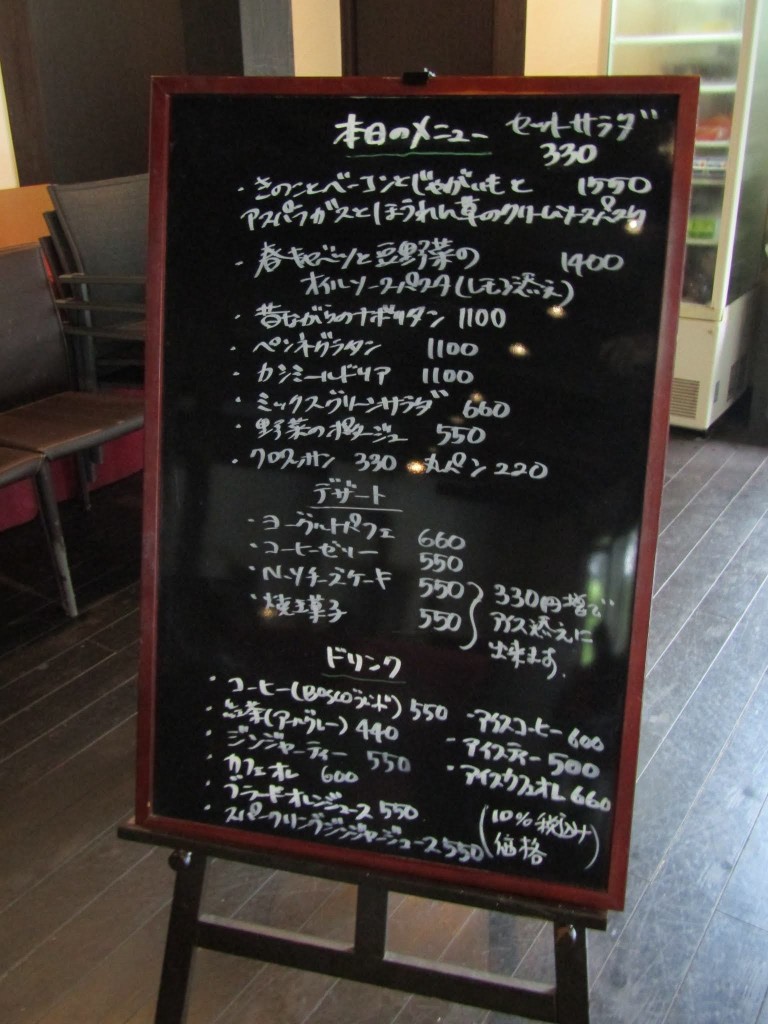 本日のメニュー セットサラダ
330
・きのことベーコンとじゃがいもと 1550
アスパラガスとほうれん草のクリームソースパスタ
・春キャベツと豆野菜の 1400
オイルソースパスタ(レモン添え)
・昔ながらのナポリタン 1100
・ペンネグラタン 1100
・カシミールドリア 1100
・ミックスグリーンサラダ 660
・野菜のポタージュ 550
・クロワッサン 330 丸パン 220
デザート
・ヨーグルトパフェ 660
・コーヒーゼリー 550
・N.Yチーズケーキ 550
・焼菓子 550
330円増で
アイス添えに
出来ます.
ドリンク
・コーヒー(BOSCOブレンド) 550
・紅茶(アールグレー) 440
・ジンジャーティー 550
・カフェオレ 600
・ブラッドオレンジジュース 550
・スパークリングジンジャージュース 550
・アイスコーヒー 600
・アイスティー 500
・アイスカフェオレ 660
(10%税込み
価格)